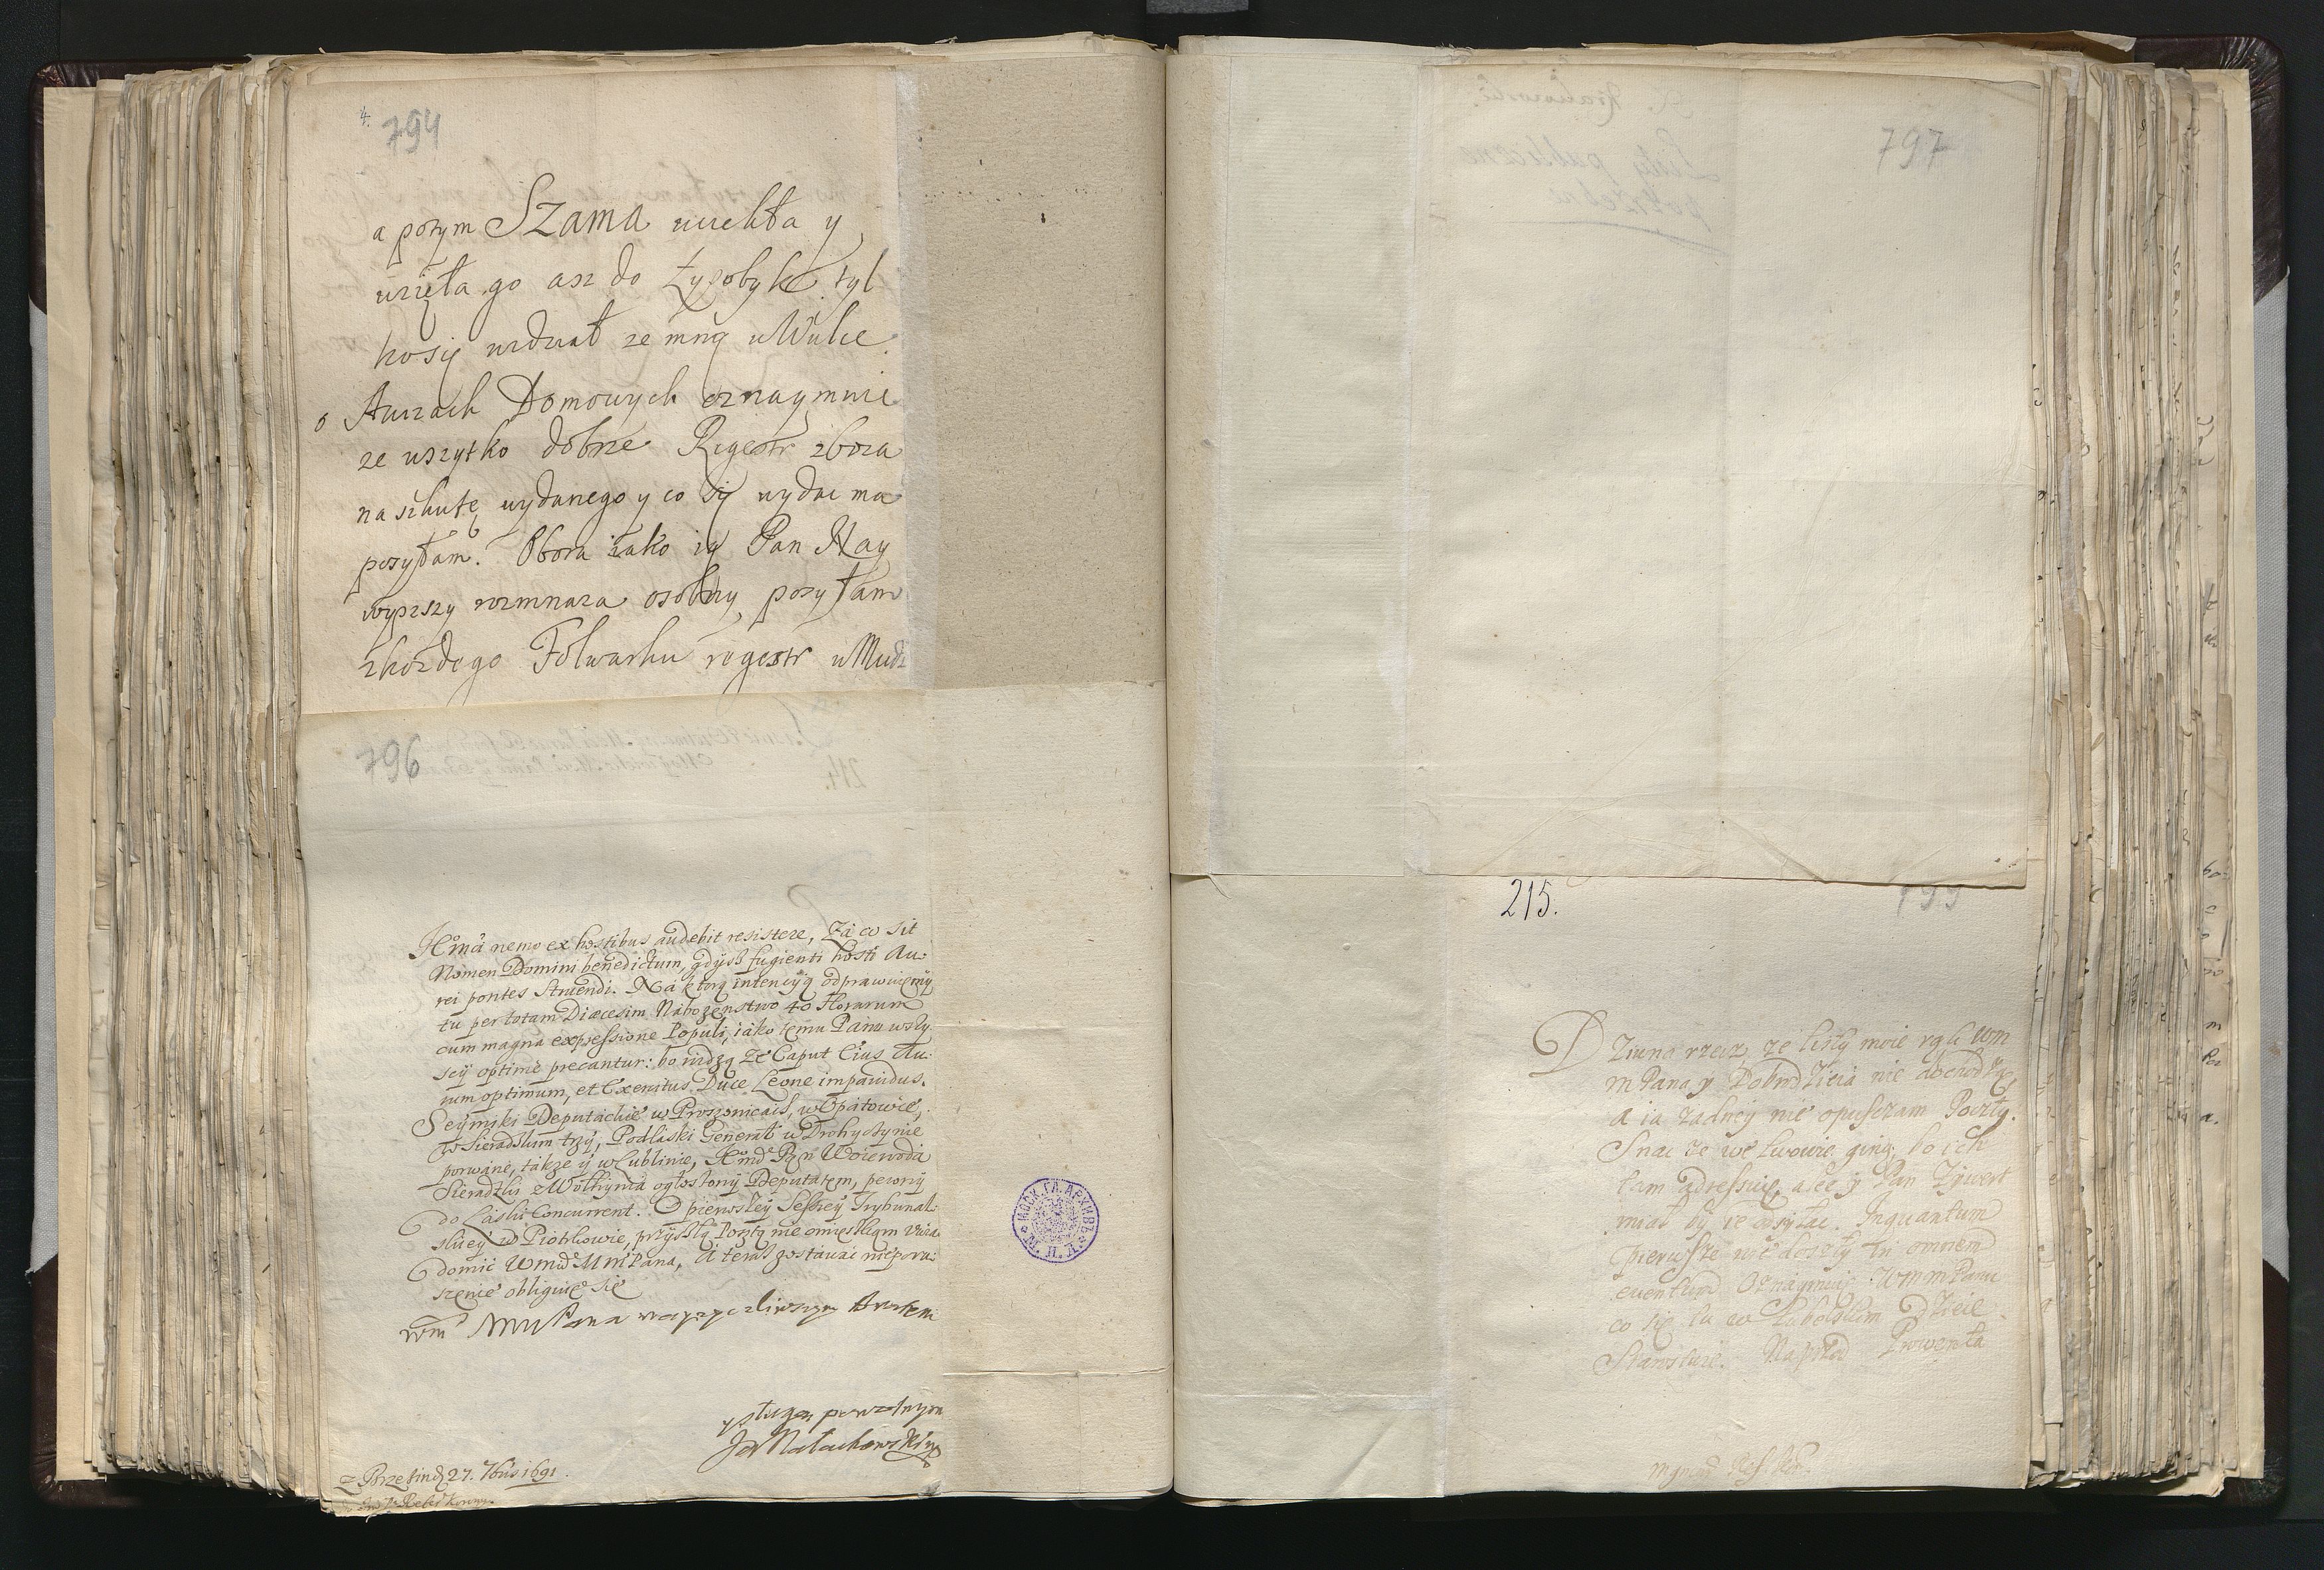 4.
794
a potym Szama uciekła y
wzięła go asz do Łysobyk tyl
ko się widział ze mną w Wulce
o Awzach Domowych oznaymuie
ze wszytko dobrze Regestr zboza
na szkutę wydanego y co się wydac ma
posyłam. Obora iako ią Pan Nay
wyszszy rozmnaza osobny posyłam
zkozdego Folwarku regestr
796
nemo ex hostibus audebit resistere, Za co sit
Nomen Domini benedictum, gdysz fugienti hosti Au-
rei pontes struendi. Na ktorą intencyią odprawuięmy
tu per totam Diæcesim Nabozenstwo 40 Horarum
cum magna expressione Populi, iako temu Panu wszy
scy optimè precantur: bo widzą ze Caput Eius Au-
rum optimum, et Exercitus Duce Leone impavidus.
Seymiki Deputackie w Proszowicach, w Opatowie,
w Sieradzkim trzy, Podlaski General w Drohyczynie
porwane, takze y w Lublinie, Pan Woiewoda
Sieradzki z Wołhynia ogłoszony Deputatem, pewny
do Laski Concurrent. O pierwszey Sessiey Trybunal-
skiey w Piotrkowie, przyszłą Posztą nie omięszkam uwia-
domic Wmc MmPana, A teraz zostawac nieporu-
szenie obliguię się
Wm MMPana nayzyczliwszym bratem
y sługą powolnym
Ja Małachowski
z Brzezin d 27. 7bris 1691.
797
215.
799
Dziwna rzecz, ze listy moie rąk Wm
mPana y Dobrodzieia nie dochodzą,
a ia zadney nie opuszczam Poczty.
Snac ze we Lwowie giną, bo ich
tam adressuię, alec y Pan Zywert
miał by ie odsyłac. Inquantum
pierwsze nie doszły in omnem
eventum Oznaymuię WmmPanu
co się tu w Lubelskim dzieie
Starostwie. Naprzod Prowenta